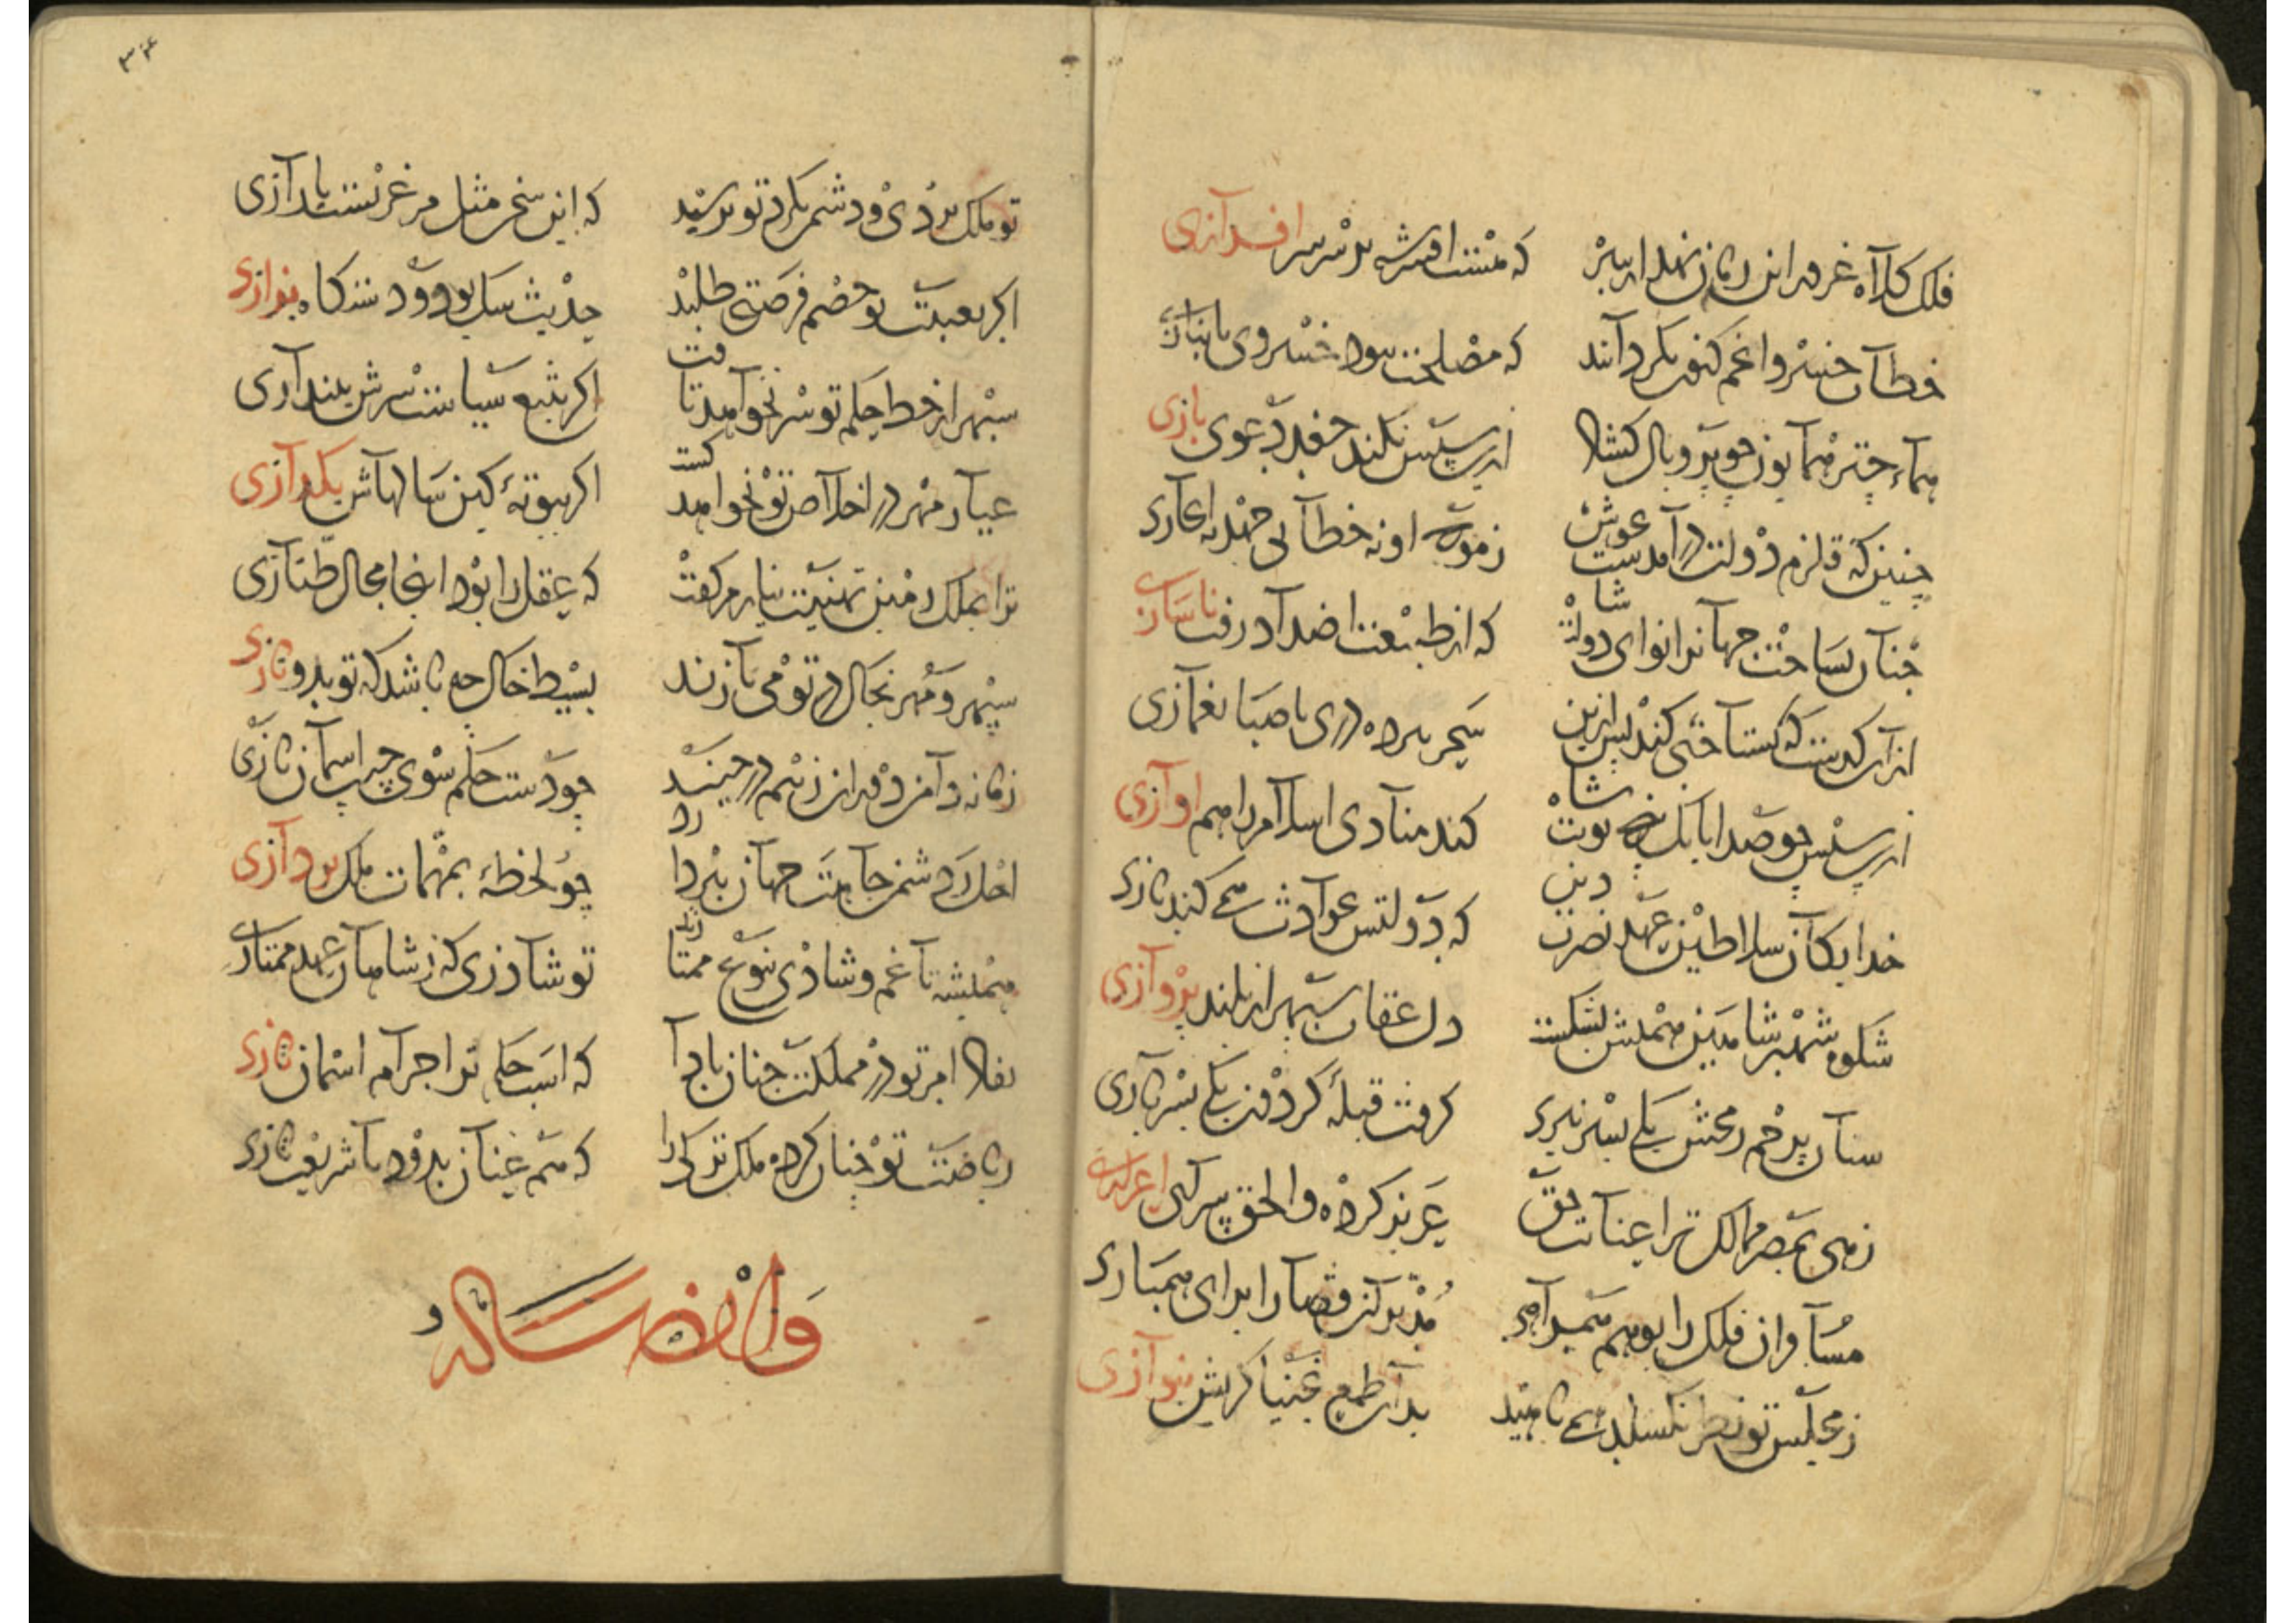 فلک کلاه غرور این زمان نهد از سر
که هست افسر شه بر سر سرافرازی
خطاب خسرو اعظم کنون بکردانند
که مصلحت نبود خسروی بانبازی
همای چتر همایون چو پر و بال کشاد
ازین سپس نکند جغد دعوی بازی
چنین که قلزم دولت در آمدست بجوش
چنان بساخت جهانرا نوای دولت شاه
که از طبیعت اضداد رفت ناسازی
از آن کذشت که کستاخیی کند پس ازین
سحر ببرده دری یا صبا بغمازی
ازین سپس چو صدا بانک نوبت شاه
کند منادی اسلام را هم اوازی
خدایکان سلاطین عهد نصرت دین
که دولتش بحوادث همی کند تازی
شکوه شهپر شاهین همتش بشکست
دل عقاب سپهر از بلند پروازی
سنان پرخم رمحش یکی بسر تیزی
گرفت قبله گردون یکی بسربازی
زهی بمصر ممالک ترا عنایت حق
عزیز کرده و الحق بهر که اعزازی
مسافران فلک را بوهم همراهی
مدبران قضا را برای همبازی
ز مجلس تو نظر نکسلد همی ناهید
بدان طمع که بخنیاکریش بنوازی
تو ملک بردی و دشمن بکرد تو نرسید
که این سخن مثل مرغزیست یا رازی
اکر بغیبت تو خصم فرصتی طلبد
حدیث سیل بود و دستکاه بزازی
سپهر از خط حکم تو سر نخواهد تافت
اکر بتیغ سیاست سرش بیندازی
عیار مهر در اخلاص تو نخواهد کشت
اکر ببوته کین سالهاش بکدازی
ترا بملک زمین تهنیت نیارم کفت
که عقل را نبود اینجا مجال طنازی
سپهر و مهر بخاک در تو می نازند
بسیط خاک چه باشد که تو بدو نازی
زمانه دامن دوران ز بیم در چیند
چو دست حکم سوی جیب اسمان یازی
اجل ز دشمن جاهت جهان بپردازد
چو لحظه بمهمات ملک پردازی
همیشه تا غم و شادی بنوع ممتازند
تو شاد زی که ز شاهان عهد ممتازی
نفاذ امر تو در مملکت چنان بادا
که اسب حکم بر اجرام اسمان تازی
ریاضت تو چنان کرده ملک ترکی را
که هم عنان برود با شریعت تازی
وله ایضا